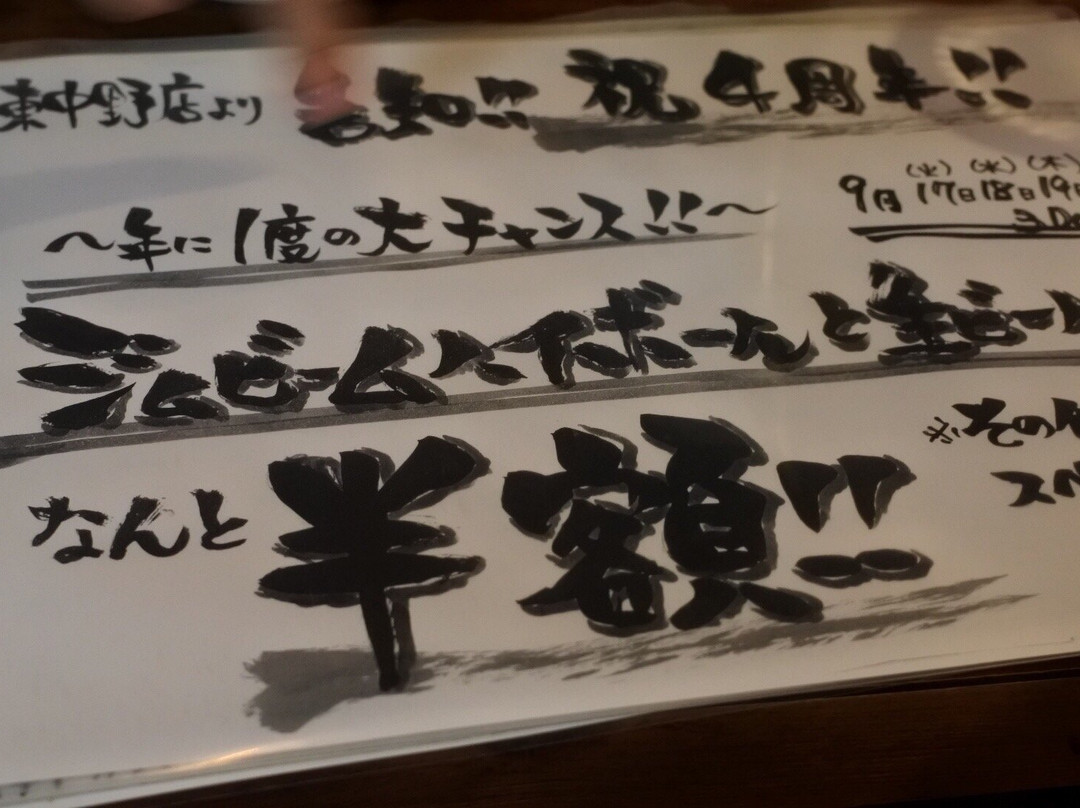 東中野店より 告知!! 祝4周年!!
(火) (水) (木)
9月 17日 18日 19日
～年に1度の大チャンス!!～
ジムビームハイボールと生ビール
なんと 半額!!
※その